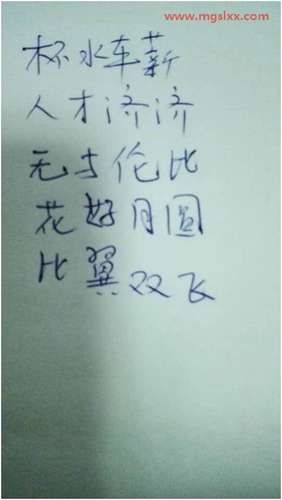 www.mgslxx.com
杯水车薪
人才济济
无与伦比
花好月圆
比翼双飞